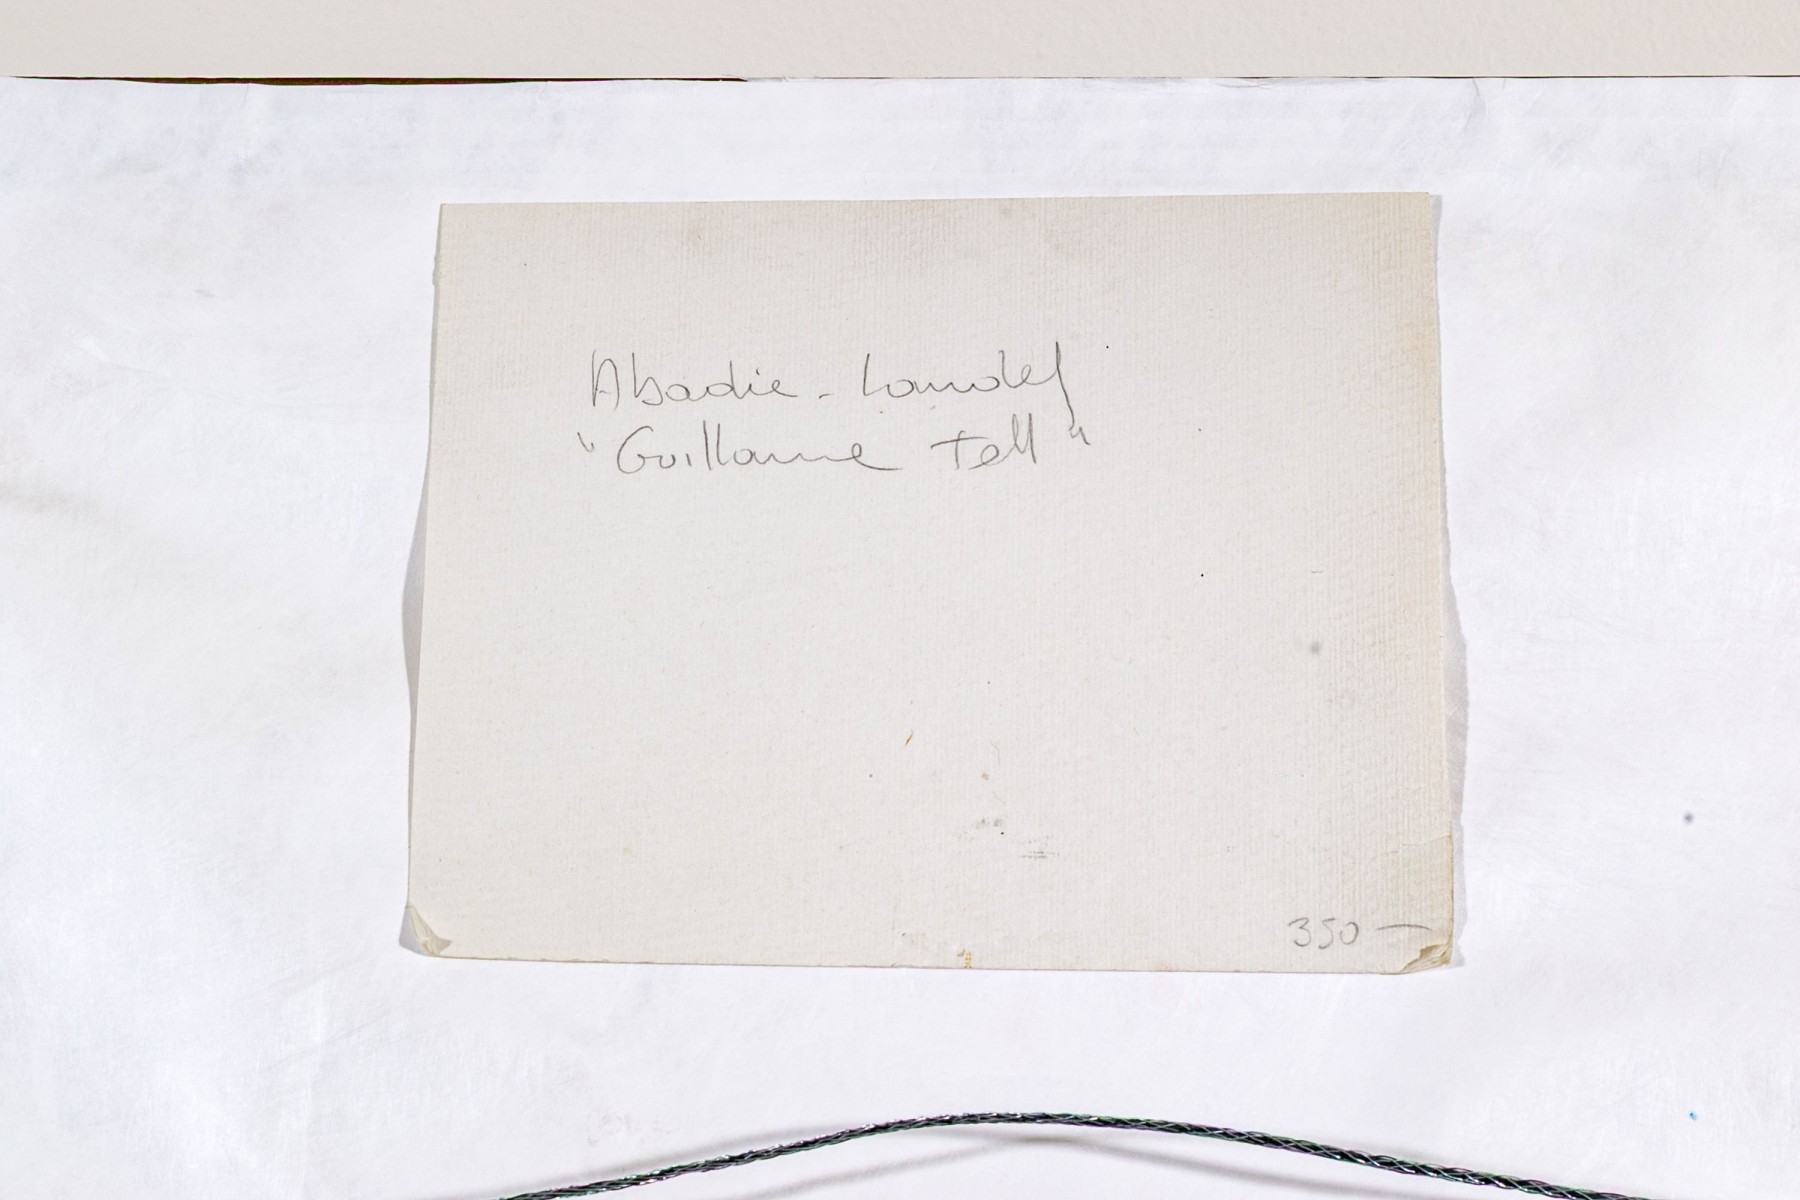 Abadie - Landel
"Guillaume Tell"
350 —